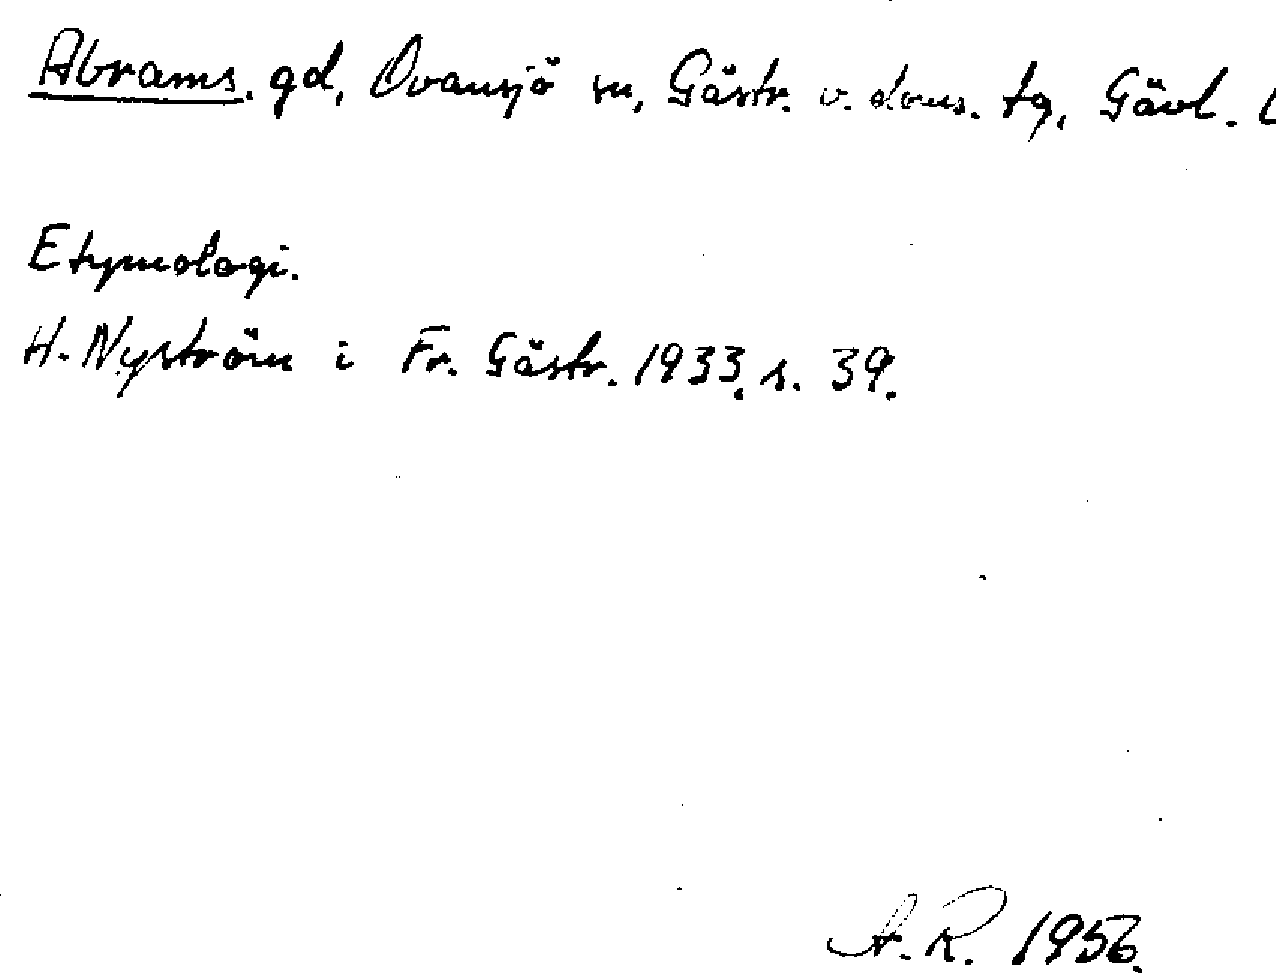 Abrams. gd, Ovansjö sn, Gästr. v. doms. tg, Gävl. L
Etymologi.
H. Nyström i Fr. Gästr. 1933. s. 39.
A. R. 1956.